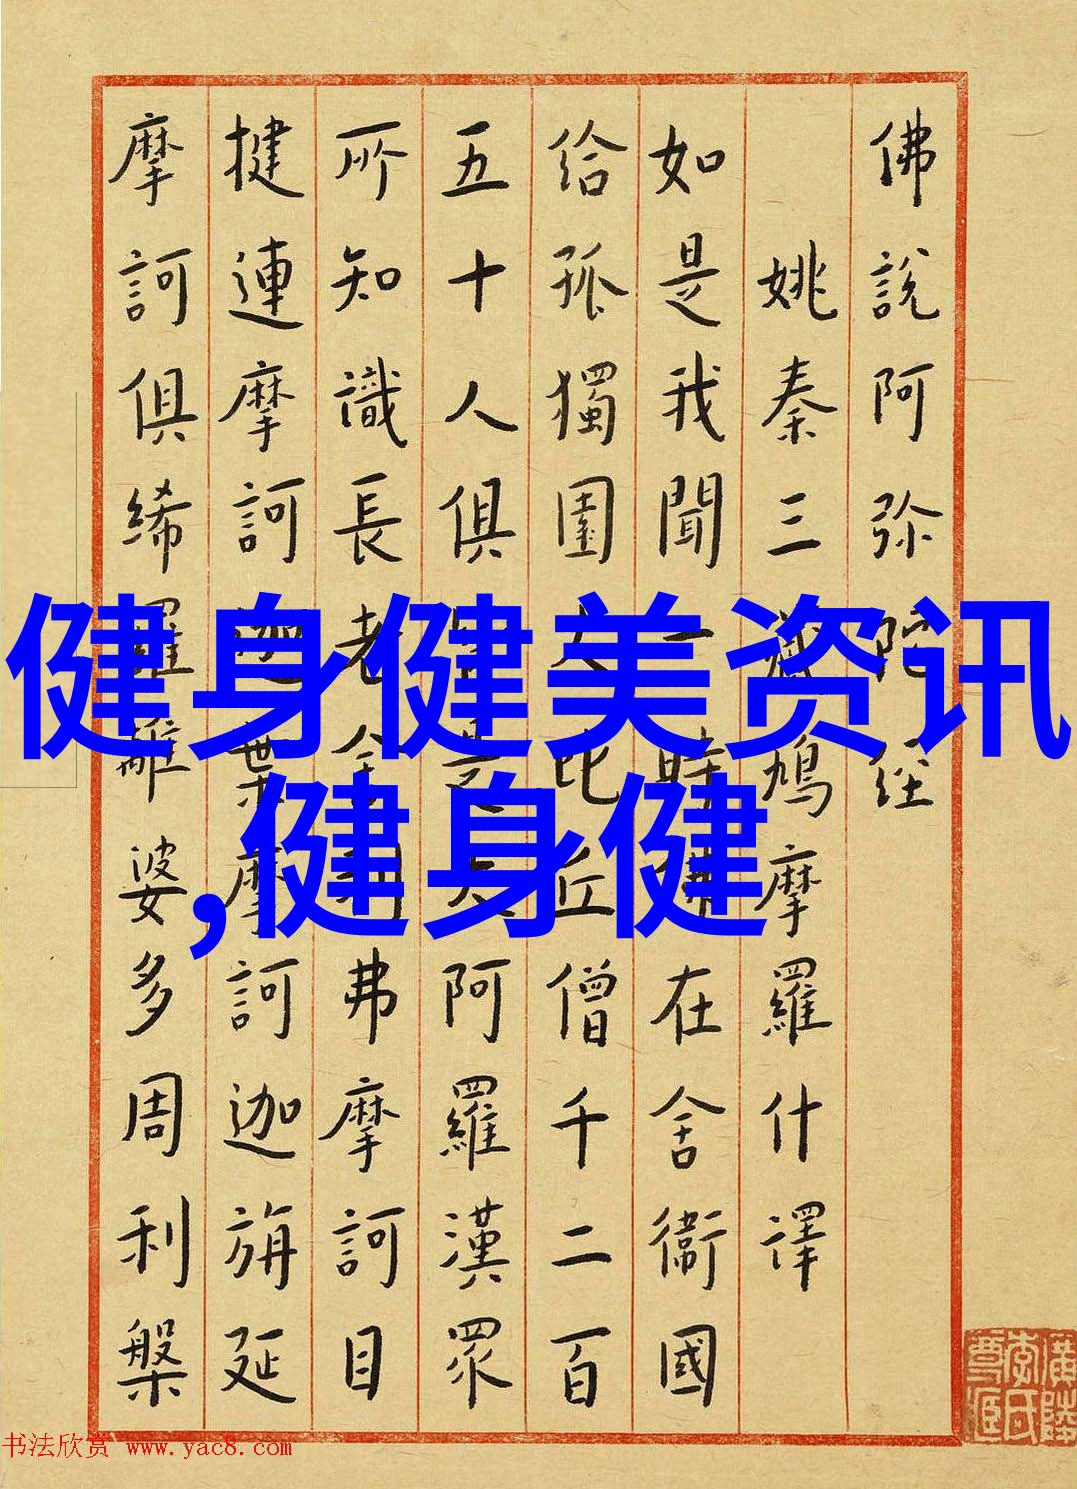 佛說阿弥陀经
姚秦三藏鳩摩羅什譯
如是我聞一時佛在舍衞國
给孤獨園大比丘僧千二百
五十人俱皆是大阿羅漢眾
所知識長老舍利弗摩訶目
揵連摩訶迦葉摩訶迦旃延
摩訶俱絺羅離婆多周利槃
健身健美资讯
,健身健
书法欣赏 www.yac8.com